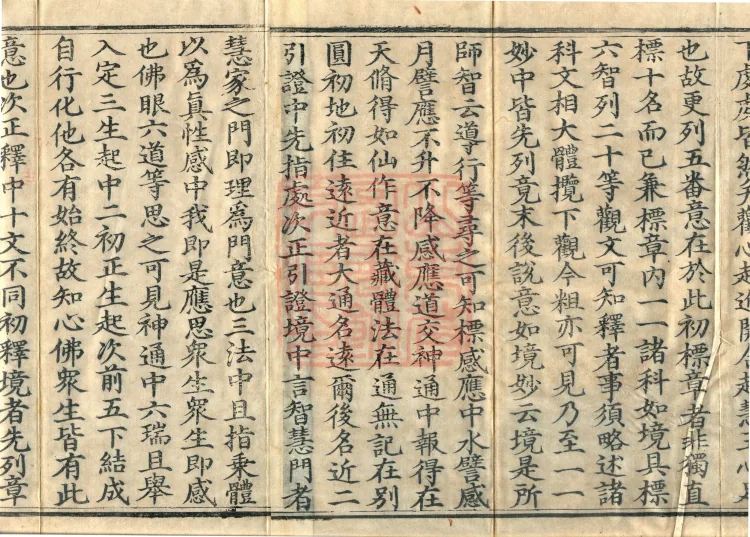 皆
也故更列五番意在於此初標章者非獨直
標十名而已兼標章內一一諸科如境具標
六智列二十等觀文可知釋者事須略述諸
科文相大體攬下觀今粗亦可見乃至一一
妙中皆先列竟末後說意如境妙云境是所
師智云導行等尋之可知標感應中水譬感
月譬應不升不降感應道交神通中報得在
天脩得如仙作意在藏體法在通無記在別
圓初地初住遠近者大通名遠爾後名近二
引證中先指處次正引證境中言智慧門者
慧家之門即理為門意也三法中且指乘體
以為真性感中我即是應思眾生眾生即感
也佛眼六道等思之可見神通中六瑞且舉
入定三生起中二初正生起次前五下結成
自行化他各有始終故知心佛眾生皆有此
意也次正釋中十文不同初釋境者先列章